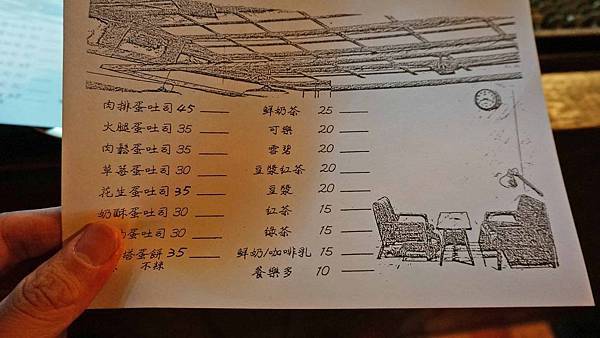 肉排蛋吐司 45 鮮奶茶 25
火腿蛋吐司 35 可樂 20
肉鬆蛋吐司 35 雪碧 20
草莓蛋吐司 30 豆漿紅茶 20
花生蛋吐司 35 豆漿 20
奶酥蛋吐司 30 紅茶 15
蛋吐司 30 綠茶 15
塔蛋餅 35 鮮奶/咖啡乳 15
不辣 養樂多 10